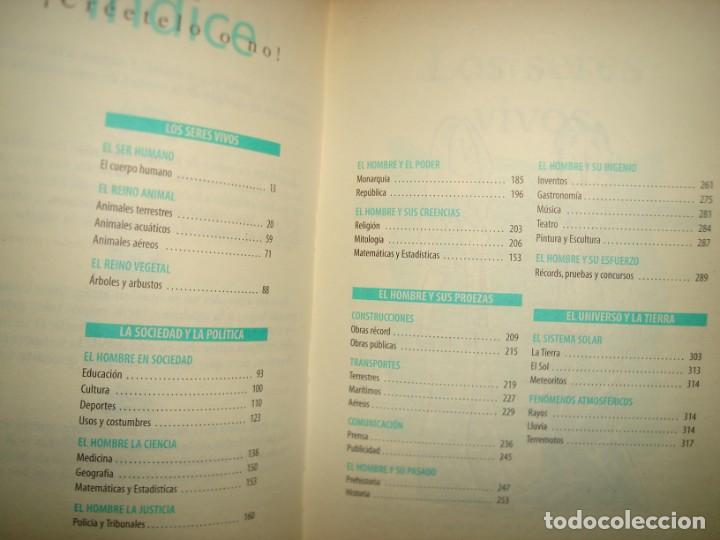 ¡Créetelo o no!
índice
LOS SERES VIVOS
EL SER HUMANO
El cuerpo humano 13
EL REINO ANIMAL
Animales terrestres 20
Animales acuáticos 59
Animales aéreos 71
EL REINO VEGETAL
Árboles y arbustos 88
LA SOCIEDAD Y LA POLÍTICA
EL HOMBRE EN SOCIEDAD
Educación 93
Cultura 100
Deportes 110
Usos y costumbres 123
EL HOMBRE LA CIENCIA
Medicina 138
Geografía 150
Matemáticas y Estadísticas 153
EL HOMBRE LA JUSTICIA
Policía y Tribunales 160
Los seres
vivos
EL HOMBRE Y EL PODER
Monarquía 185
República 196
EL HOMBRE Y SUS CREENCIAS
Religión 203
Mitología 206
Matemáticas y Estadísticas 153
EL HOMBRE Y SUS PROEZAS
CONSTRUCCIONES
Obras récord 209
Obras públicas 215
TRANSPORTES
Terrestres 219
Marítimos 227
Aéreos 229
COMUNICACIÓN
Prensa 236
Publicidad 245
EL HOMBRE Y SU PASADO
Prehistoria 247
Historia 253
EL HOMBRE Y SU INGENIO
Inventos 261
Gastronomía 275
Música 281
Teatro 284
Pintura y Escultura 287
EL HOMBRE Y SU ESFUERZO
Récords, pruebas y concursos 289
EL UNIVERSO Y LA TIERRA
EL SISTEMA SOLAR
La Tierra 303
El Sol 313
Meteoritos 314
FENÓMENOS ATMOSFÉRICOS
Rayos 314
Lluvia 314
Terremotos 317
todocoleccion
todocoleccion.net